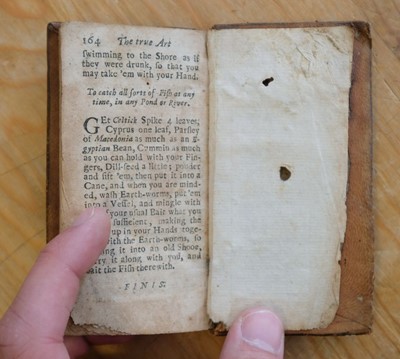 164 The true Art
swimming to the Shore as if
they were drunk, so that you
may take 'em with your Hand.
To catch all sorts of Fish at any
time, in any Pond or River.
GEt Celtick Spike 4 leaves,
Cyprus one leaf, Parsley
of Macedonia as much as an E-
gyptian Bean, Cummin as much
as you can hold with your Fin-
gers, Dill-seed a little; powder
and sift 'em, then put it into a
Cane, and when you are mind-
ed, wash Earth-worms, put 'em
into a Vessel, and mingle with
of your usual Bait what you
sufficient, making the
up in your Hands toge-
with the Earth-worms, so
it into an old Shooe,
it along with you, and
bait the Fish therewith.
FINIS.